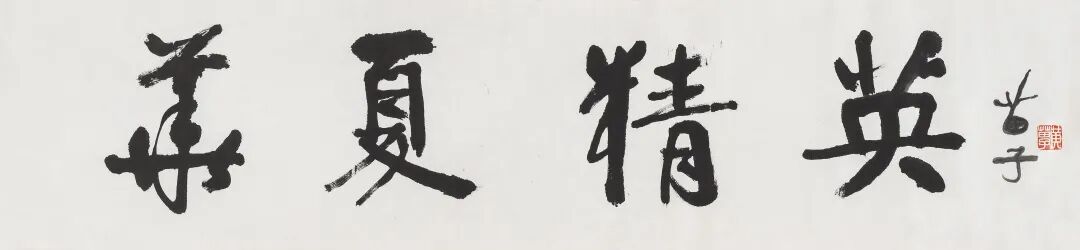 華夏精英
苗子